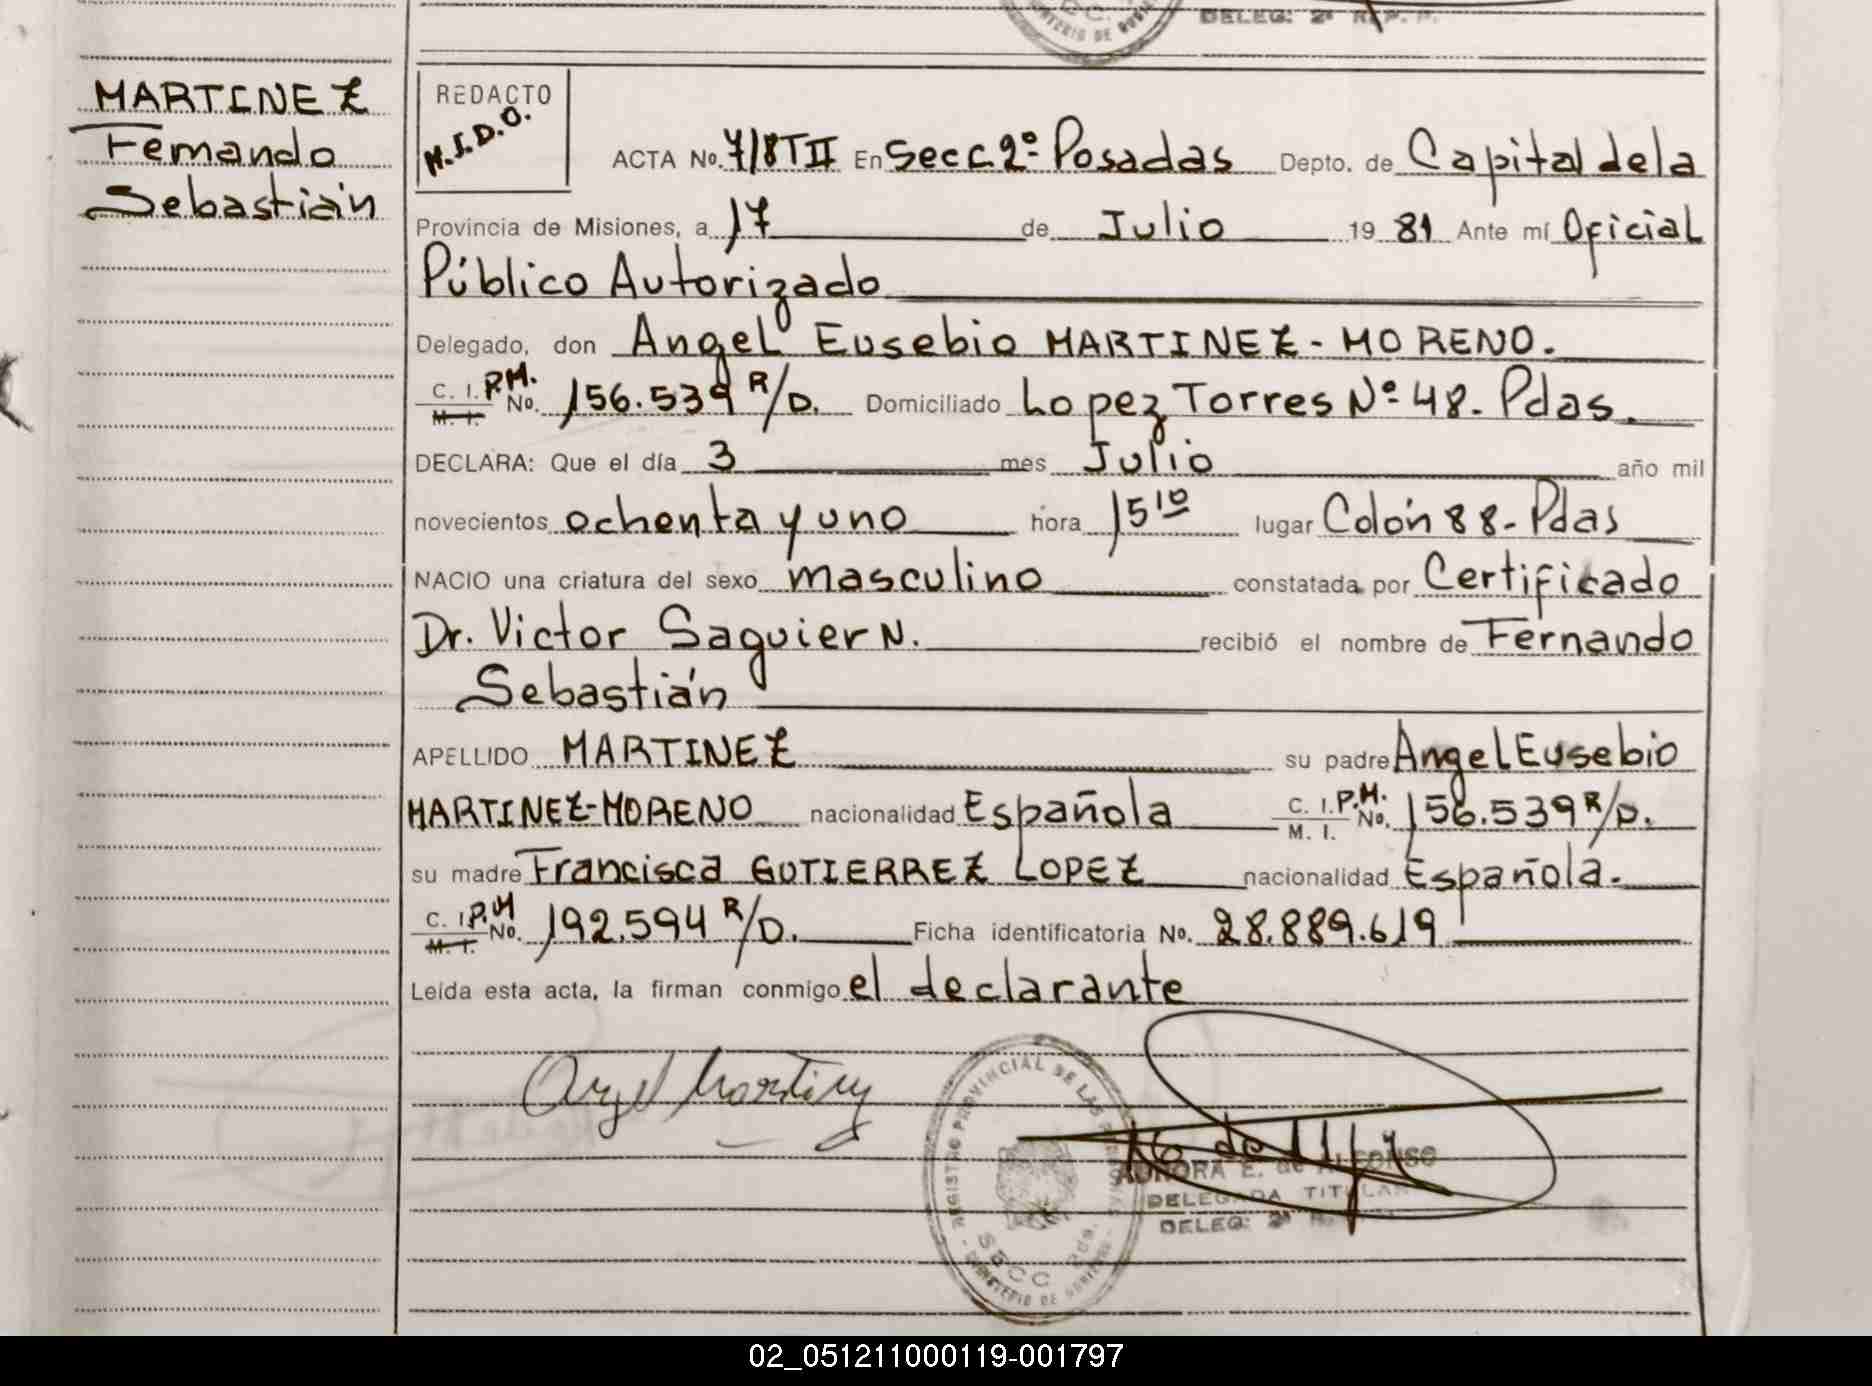 DELEG: 2ª R. P. P.
MARTINEZ
Fernando
Sebastián
REDACTO
M.J.D.O.
ACTA No. 718 T II En Secc. 2º Posadas Depto. de Capital de la
Provincia de Misiones, a 17 de Julio 19 81 Ante mí Oficial
Público Autorizado
Delegado, don Angel Eusebio MARTINEZ-MORENO.
C. I. P.M. M. I. No. 156.539 R/D. Domiciliado Lopez Torres Nº 48. Pdas.
DECLARA: Que el día 3 mes Julio año mil
novecientos ochenta y uno hora 15 10 lugar Colón 88- Pdas
NACIO una criatura del sexo masculino constatada por Certificado
Dr. Victor Saguier N. recibió el nombre de Fernando
Sebastián
APELLIDO MARTINEZ su padre Angel Eusebio
MARTINEZ-MORENO nacionalidad Española C. I. P.M. M. I. No. 156.539 R/D.
su madre Francisca GUTIERREZ LOPEZ nacionalidad Española.
C. I. P.M M. I. No. 192.594 R/D. Ficha identificatoria No. 28.889.619
Leída esta acta, la firman conmigo el declarante
Angel Martinez
REGISTRO PROVINCIAL DE LAS
SECC 2da.
MINISTERIO DE GOBIERNO
AURORA E. de ALFONSO
DELEGADA TITULAR
DELEG: 2ª R.
02_051211000119-001797